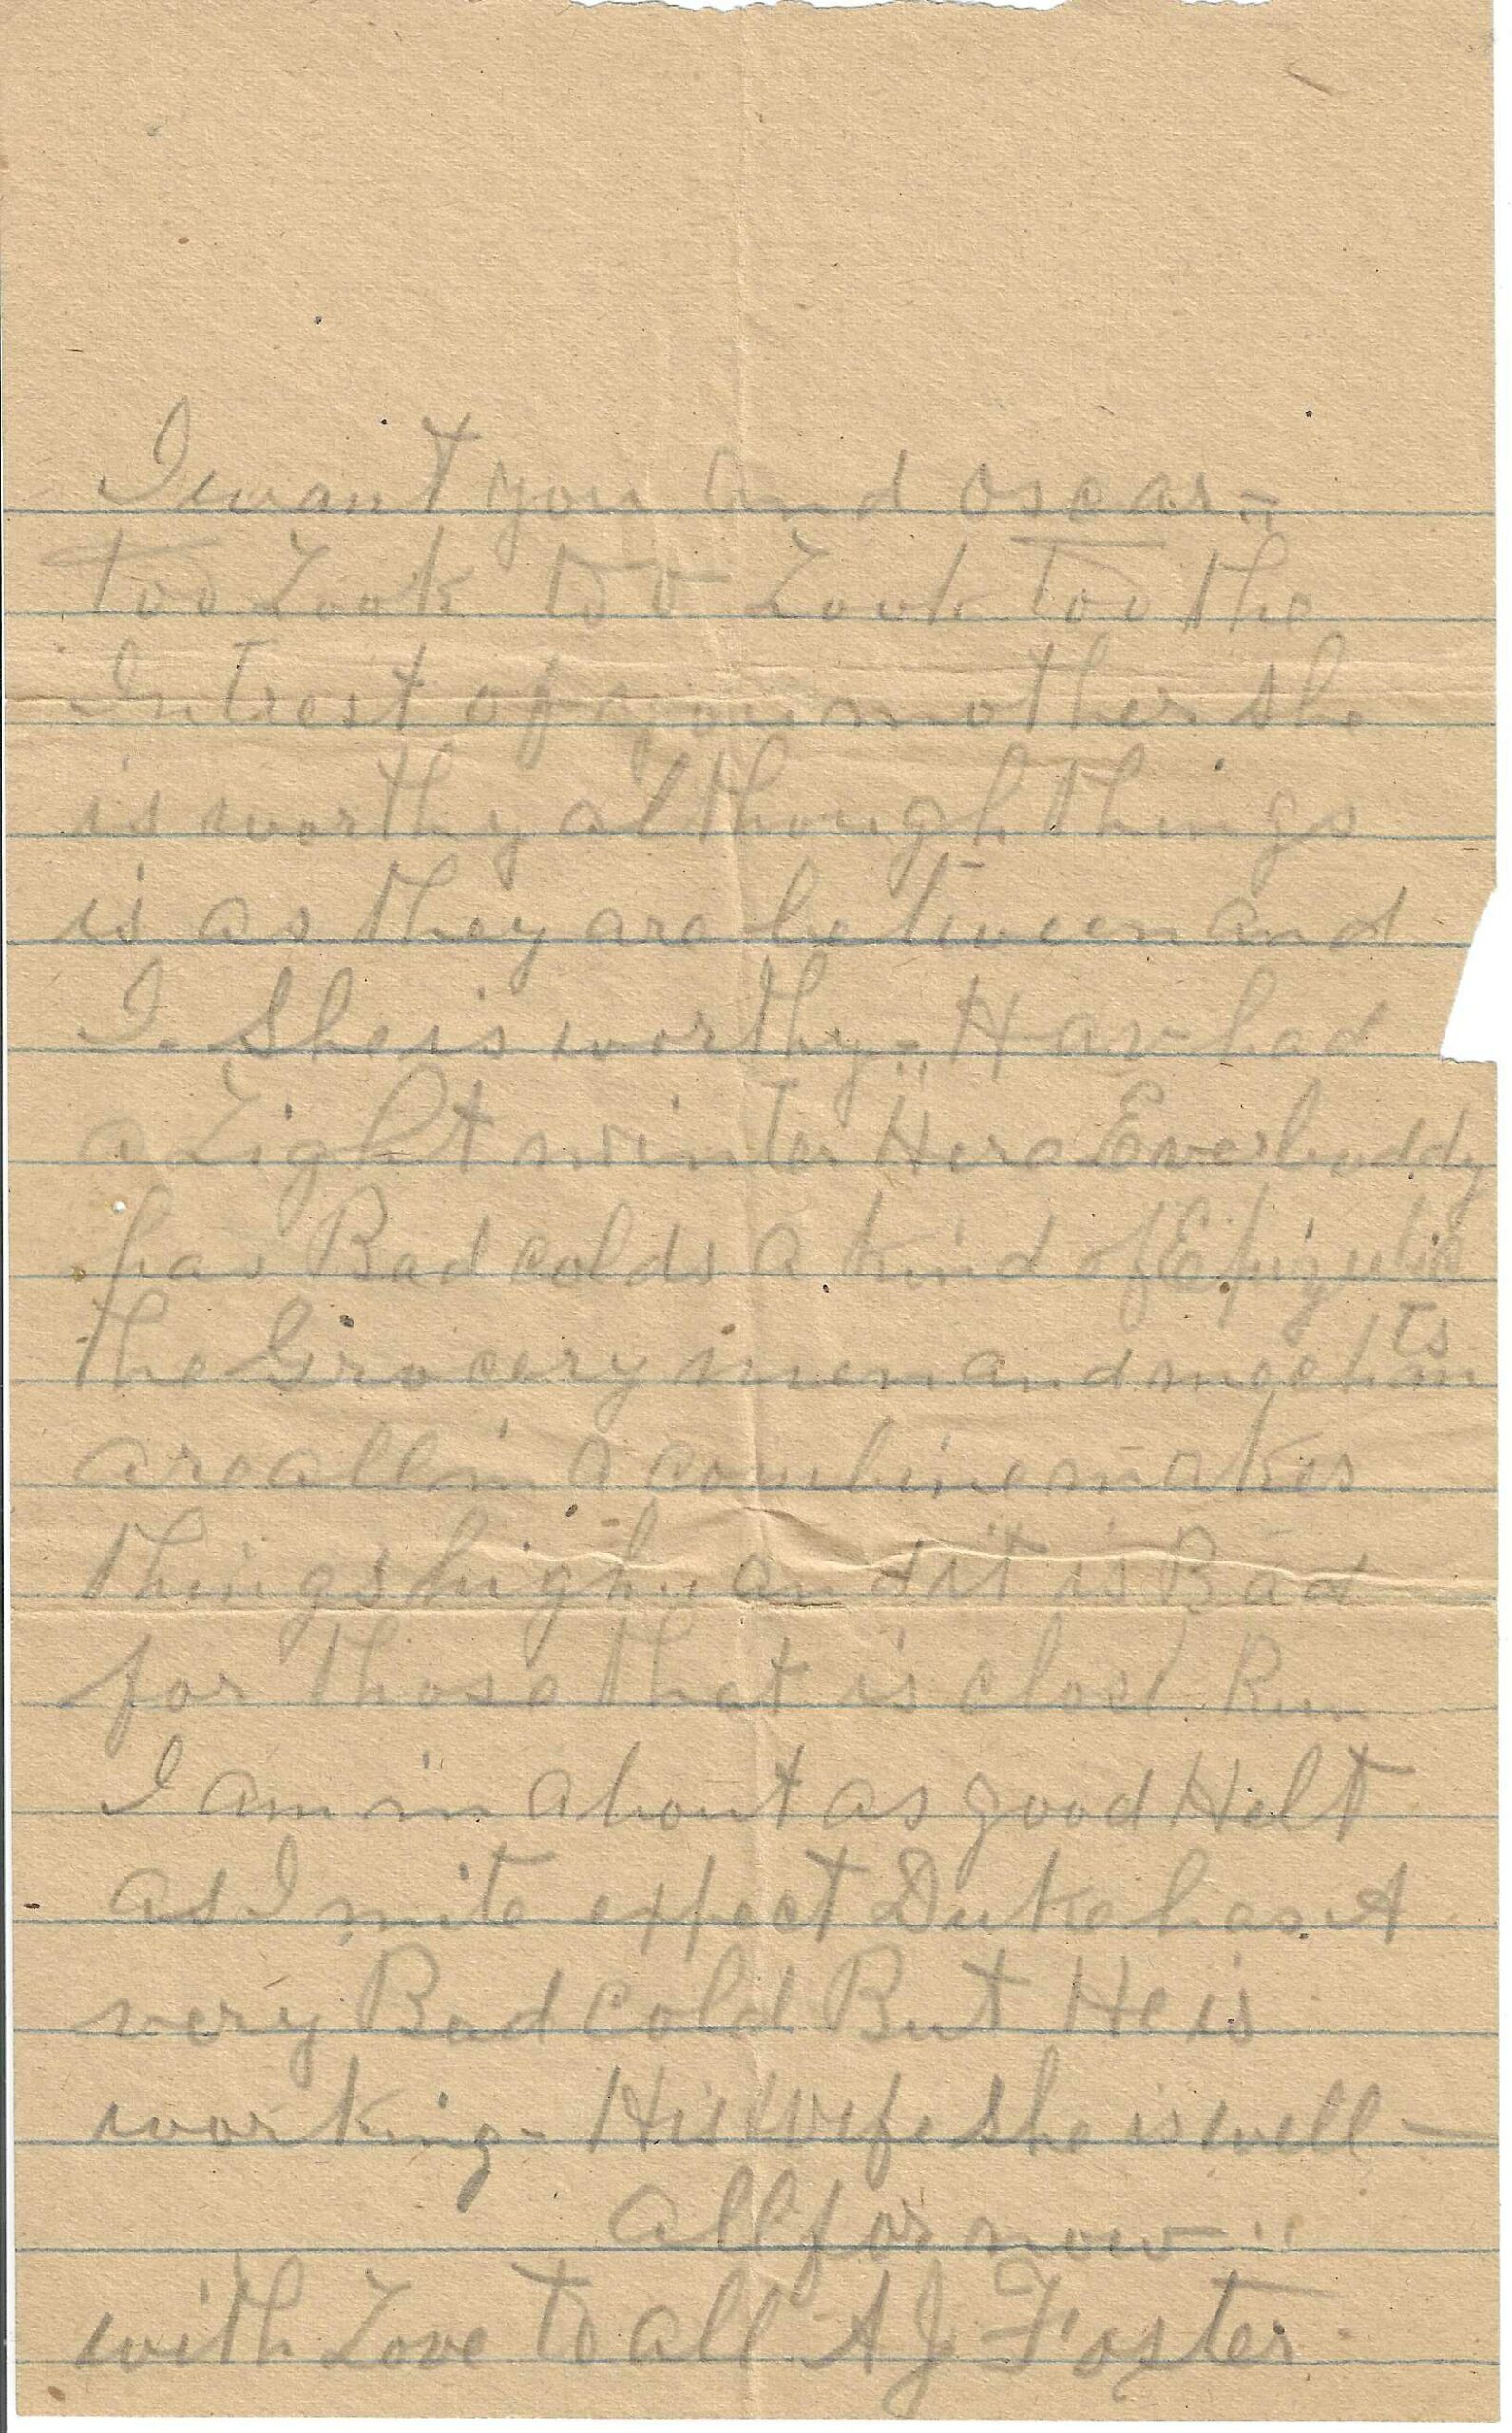 I want you and oscar -
too Look too Look too the
Intrest of your mother she
is worthy although things
is as they are between and
I. She is worthy - Hav had
a Light winter Here Everboddy
has Bad colds a kind of Epizutic
the Grocery men and
are all in a combine makes
things high and it is Bad
for those that is close Run
I am in about as good Helt
as I mite expect Duke has A
very Bad cold But He is
working - His wife she is well -
all for now -
with Love to all A J Foster